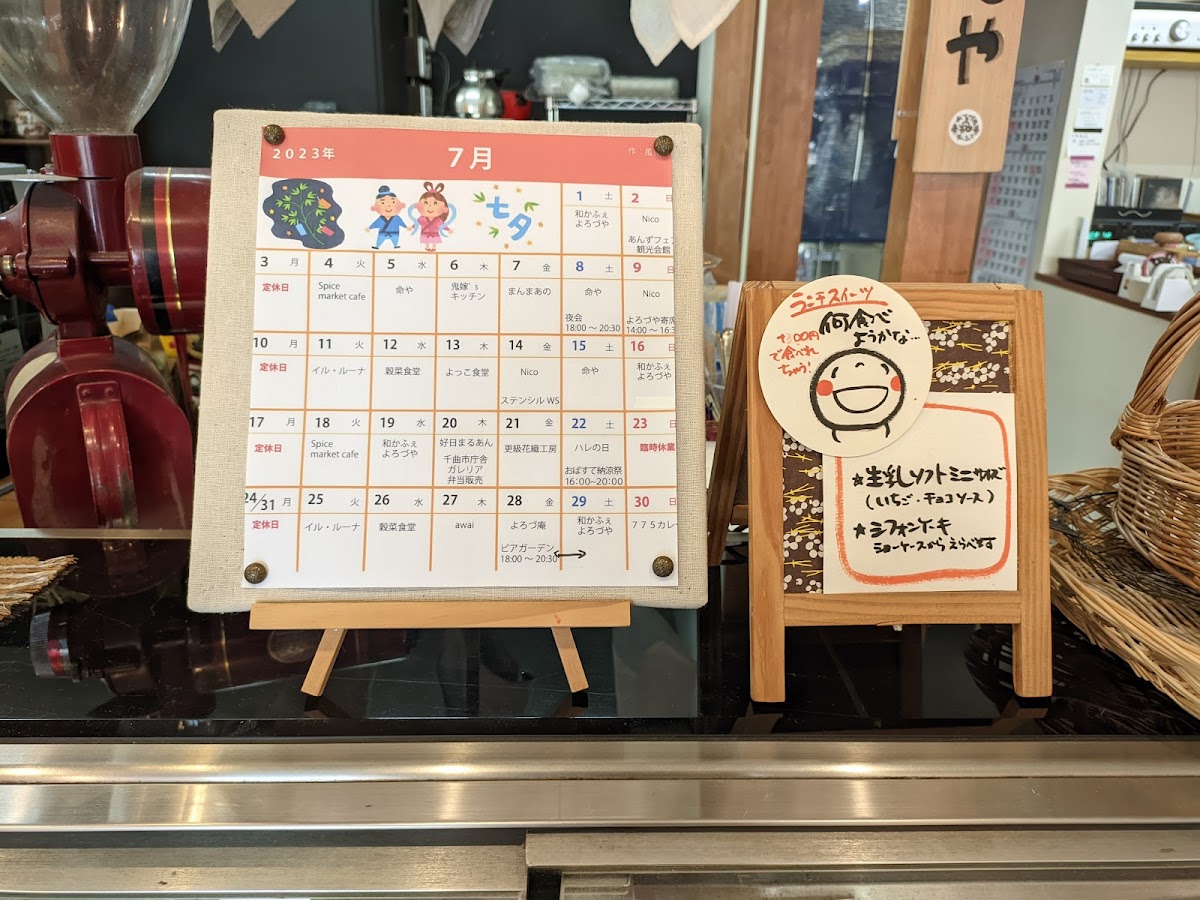 2023年 7月 作:風
七夕
1 土
和かふぇ
よろづや
2 日
Nico
あんずフェア
観光会館
3 月
定休日
4 火
Spice
market cafe
5 水
命や
6 木
鬼嫁's
キッチン
7 金
まんまあの
8 土
命や
夜会
18:00 〜 20:30
9 日
Nico
よろづや寄席
14:00 〜 16:3
10 月
定休日
11 火
イル・ルーナ
12 水
穀菜食堂
13 木
よっこ食堂
14 金
Nico
ステンシル WS
15 土
命や
16 日
和かふぇ
よろづや
17 月
定休日
18 火
Spice
market cafe
19 水
和かふぇ
よろづや
20 木
好日まるあん
千曲市庁舎
ガレリア
弁当販売
21 金
更級花織工房
22 土
ハレの日
おばすて納涼祭
16:00~20:00
23 日
臨時休業
24/31 月
定休日
25 火
イル・ルーナ
26 水
穀菜食堂
27 木
awai
28 金
よろづ庵
ビアガーデン
18:00 〜 20:30
29 土
和かふぇ
よろづや
30 日
775カレー
ランチスイーツ
何食べ
ようかな…
で食べれ
ちゃう!
★生乳ソフトミニサイズ
(いちご・チョコソース)
★シフォンケーキ
ショーケースからえらべます
や